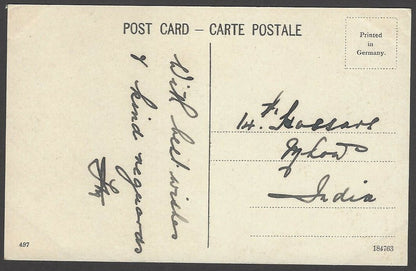 POST CARD – CARTE POSTALE
Printed
in
Germany.
With best wishes
& kind regards
14th Hussars
Mhow
India
497
184763